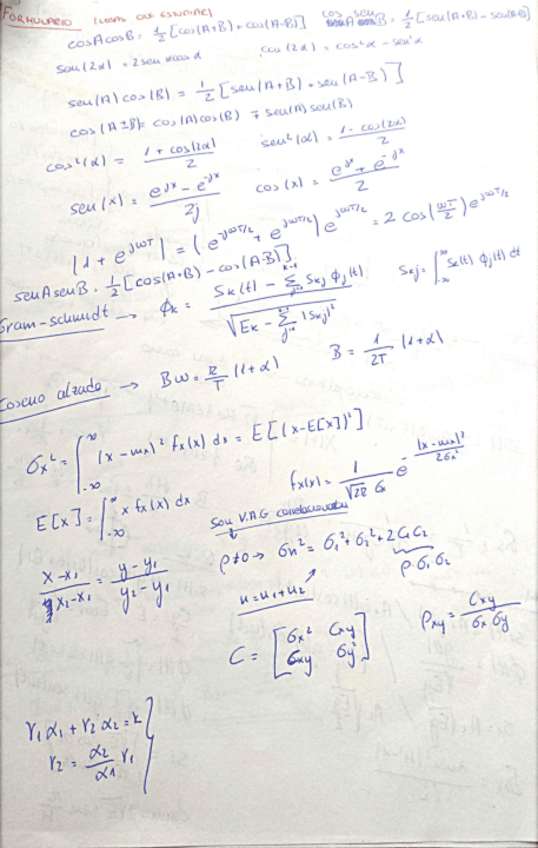 FORMULARIO (COSAS QUE ESTUDIAR)
cosAcosB = 1/2 [cos(A+B) + cos(A-B)] cos senB = 1/2 [sen(A+B) - sen(A-B)]
sen(2α) = 2senαcosα cos(2α) = cos²α - sen²α
sen(A)cos(B) = 1/2 [sen(A+B) + sen(A-B)]
cos(A±B) = cos(A)cos(B) ∓ sen(A)sen(B)
cos²(α) = (1 + cos(2α))/2 sen²(α) = (1 - cos(2α))/2
sen(x) = (e^jx - e^-jx)/2j cos(x) = (e^jx + e^-jx)/2
|1 + e^jωT| = (e^-jωT/2 + e^jωT/2) e^jωT/2 = 2 cos(ωT/2) e^jωT/2
senAsenB = 1/2 [cos(A+B) - cos(A-B)]
Gram-schmidt → ϕk = (Sk(t) - Σ_{j=1}^{k-1} Skj ϕj(t)) / √(Ek - Σ_{j=1}^{k-1} |Skj|²) Skj = ∫_{-∞}^{∞} Sk(t) ϕj(t) dt
Coseno alzado → Bω = π/T (1+α) B = 1/2T (1+α)
σx² = ∫_{-∞}^{∞} (x - mx)² fx(x) dx = E[(x-E[x])²]
fx(x) = 1/(√2π σx) e^-(x-mx)²/2σx²
E[x] = ∫_{-∞}^{∞} x fx(x) dx
Son V.A.G correlacionadas
ρ≠0 → σn² = σ1² + σ2² + 2C1C2
ρ·σ1·σ2
(x-x1)/(x2-x1) = (y-y1)/(y2-y1)
n = n1 + n2
C = [σx² Cxy
Cxy σy²]
ρxy = Cxy/(σx σy)
r1α1 + r2α2 = k
r2 = α2/α1 r1